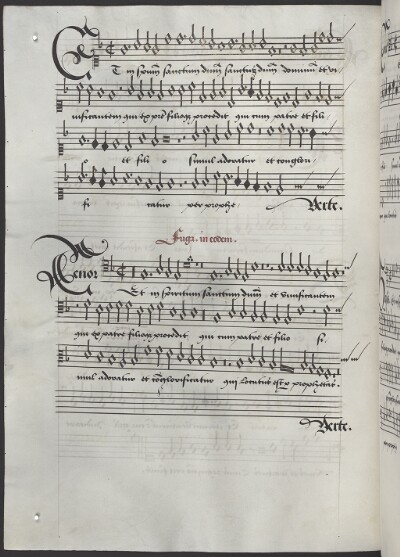 Et in spm sanctum dnm sanctus dnm dominum et vi
vificantem qui ex pre filioqz procedit qui cum patre et fili
o et fili o simul adoratur et conglori
fi catur per prophe Verte.
Fuga. in eodem.
Tenor
Et in spiritum sanctum dnm et vivificantem
qui ex patre filioqz procedit qui cum patre et filio si
mul adoratur et conglorificatur qui locutus est p prophetas.
Verte.